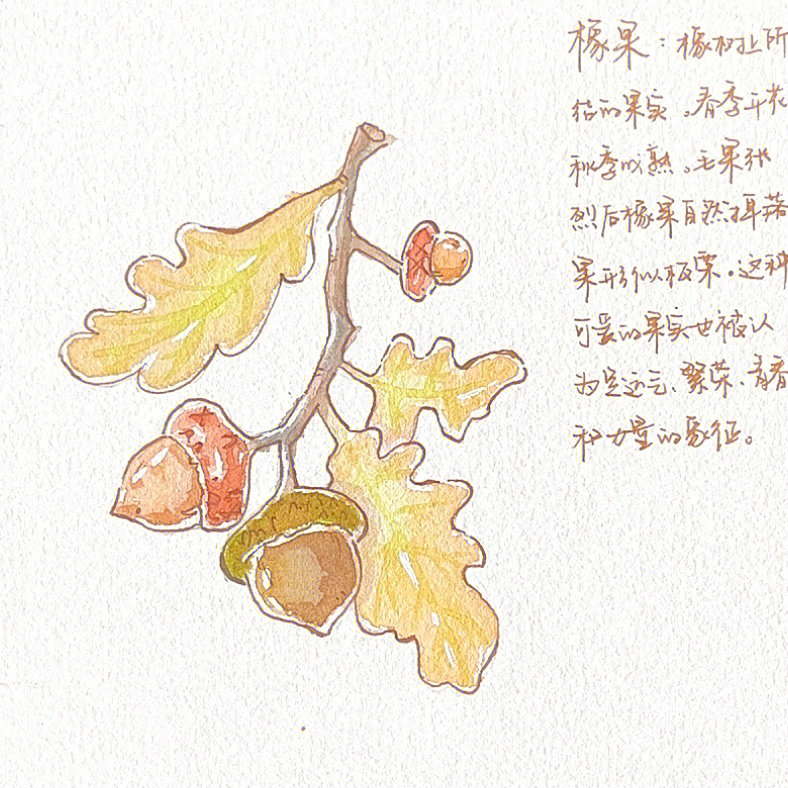 橡果：橡树上所
结的果实。春季开花
秋季成熟。毛果张
烈后橡果自然掉落
果形似板栗。这种
可爱的果实也被认
为是运气、繁荣、青春
和力量的象征。